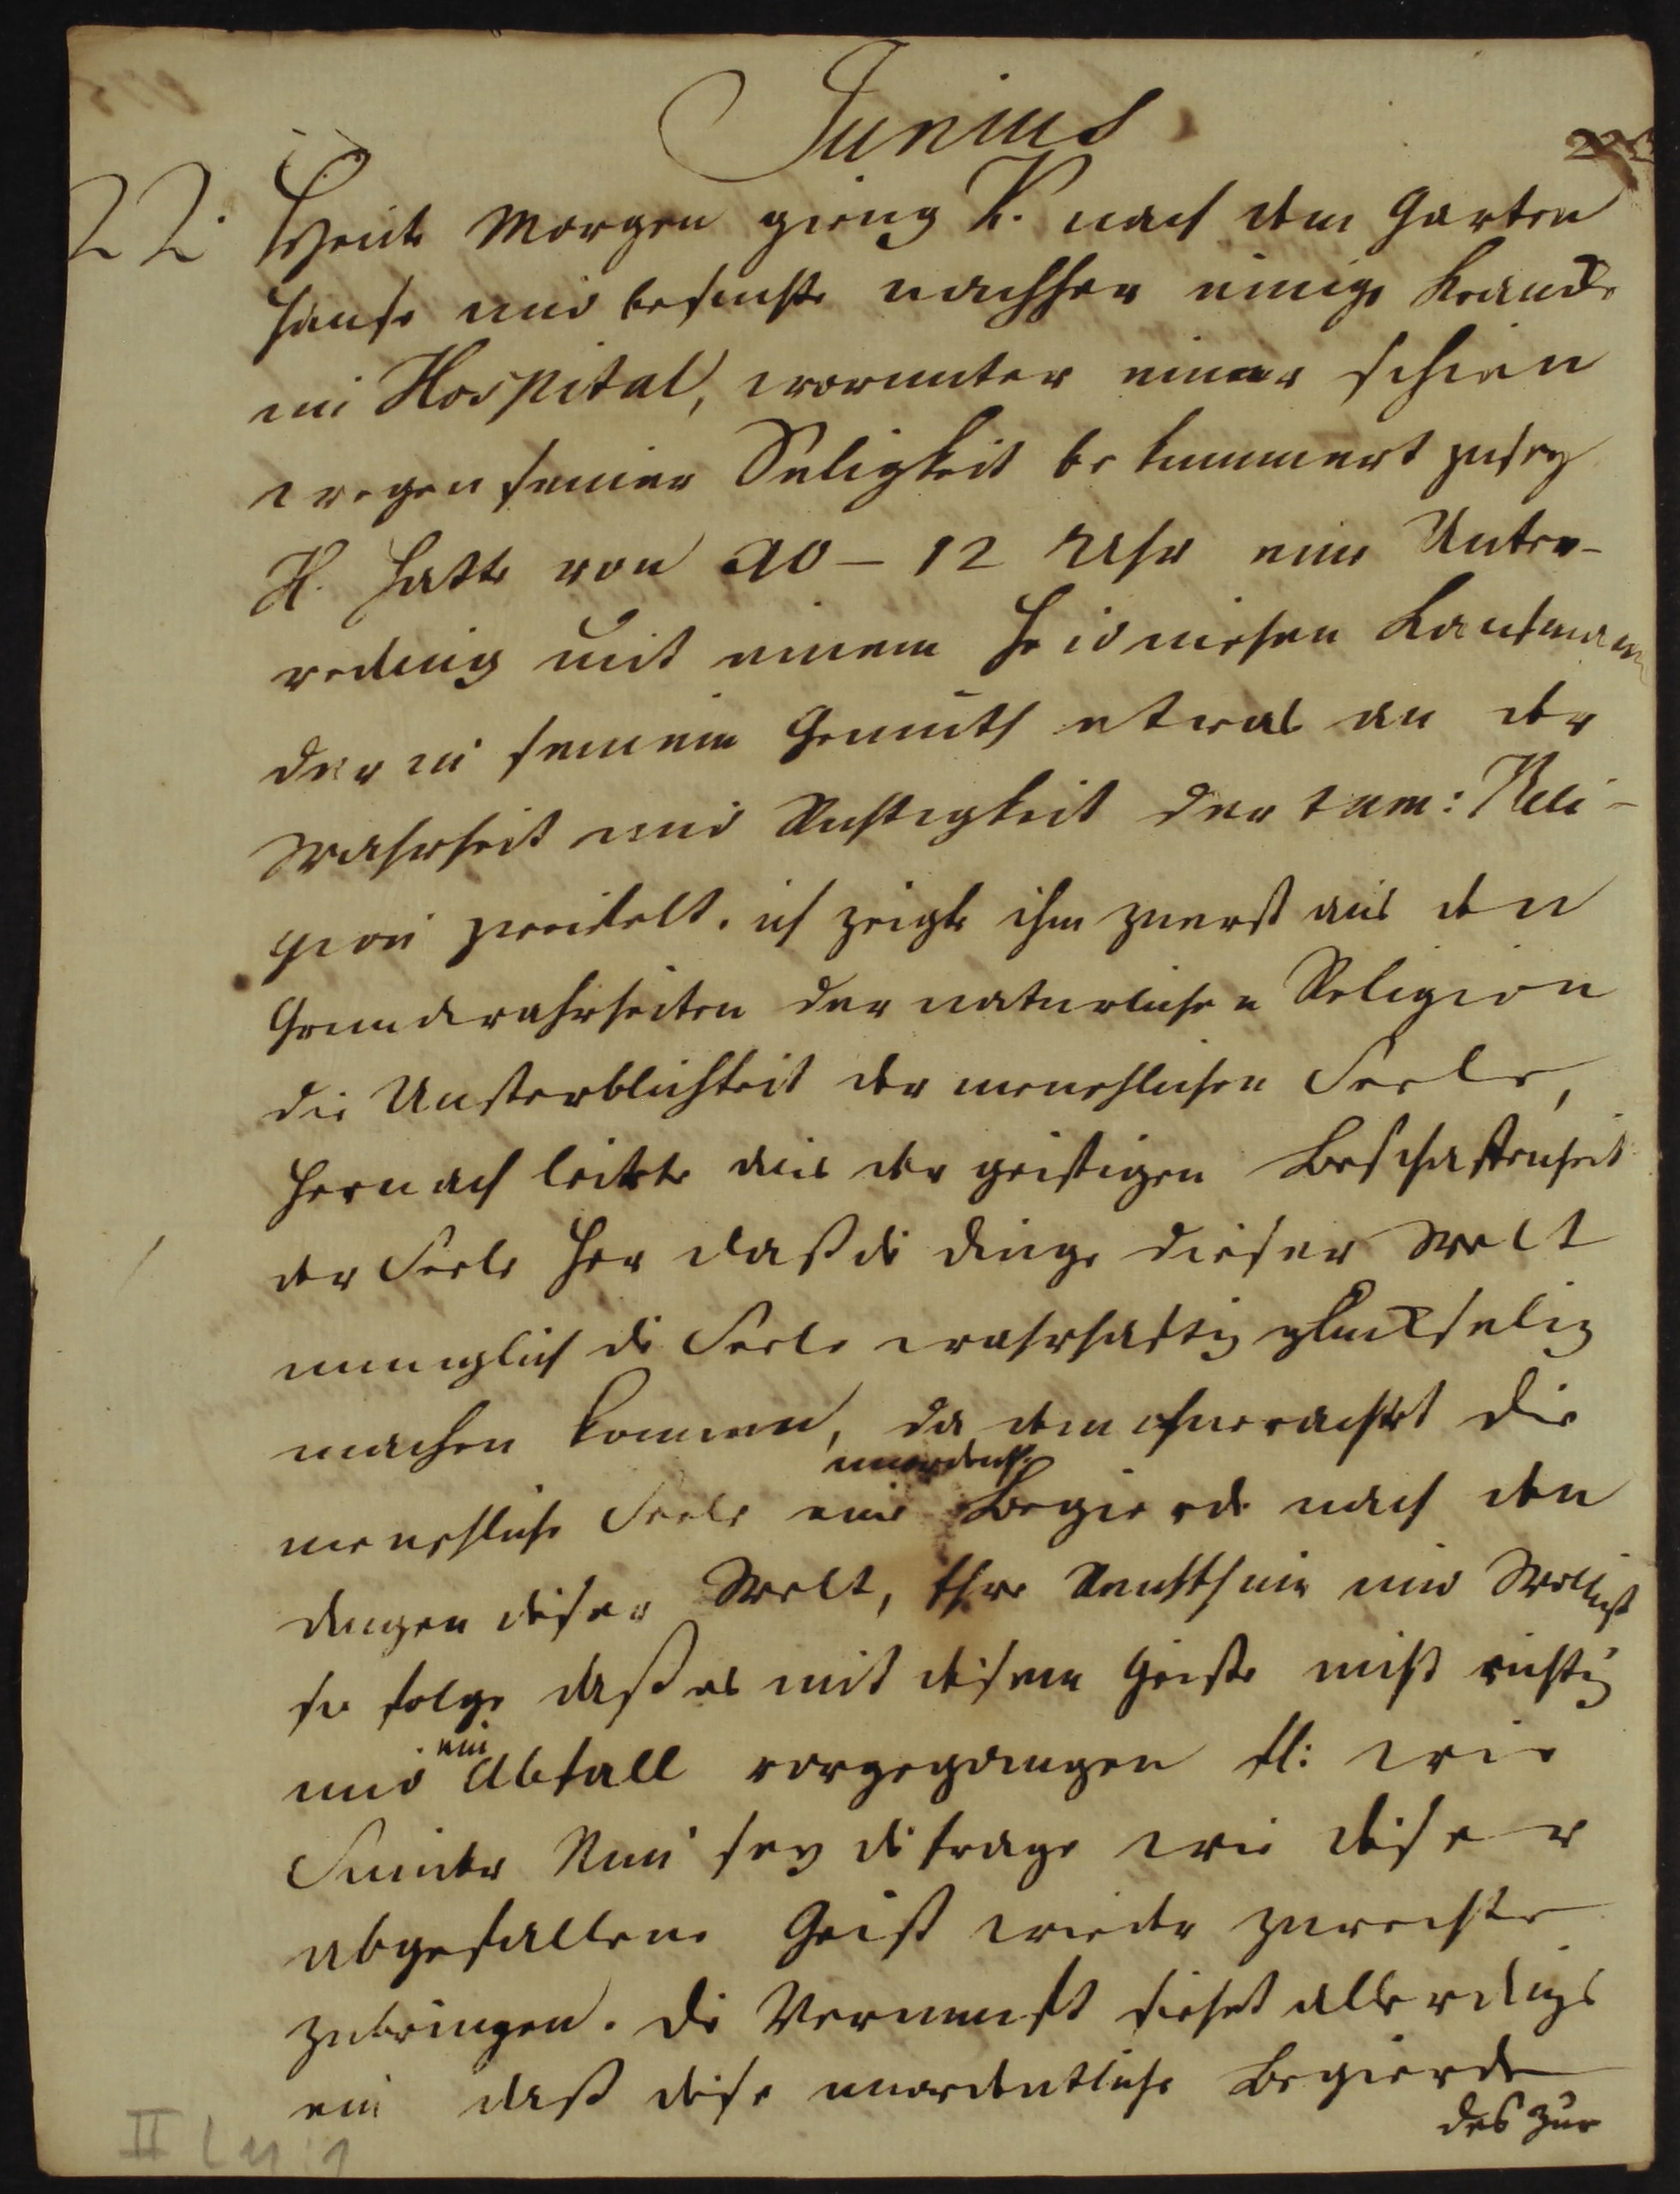 Junius
22. Heute Morgen gieng K. nach dem Garten
hause und besuchte nachher einige Krancke
im Hospital, worunter einer schien
wegen seiner Seligkeit bekummert zuseyn
K. hatte von 10 – 12 Uhr eine Unter-
redung mit einem heidnischen Kaufmann
der in seinem Gemuth etwas an der
Wahrheit und Richtigkeit der tam: Reli-
gion zweifelt. ich zeigte ihm zuerst aus den
Grundwahrheiten der naturlichen Religion
die Unsterblichkeit der menschlichen Seele,
hernach leitete aus der geistigen Beschaffenheit
der Seele her daß die dinge dieser Welt
unmoglich die Seele wahrhaftig gluckselig
machen konnen, da dem ohnerachtet die
menschliche Seele eine unordentliche Begierde nach den
dingen dieser Welt, Ehre Reichthum und Wollust
so folge daß es mit diesem Geiste nicht richtig
und ein Abfall vorgegangen wie
Sunder Nun sey die frage wie dieser
abgefallene Geist wieder zurechte
zubringen. die Vernunft siehet allerdings
ein daß diese unordentliche Begierde
des zur
II